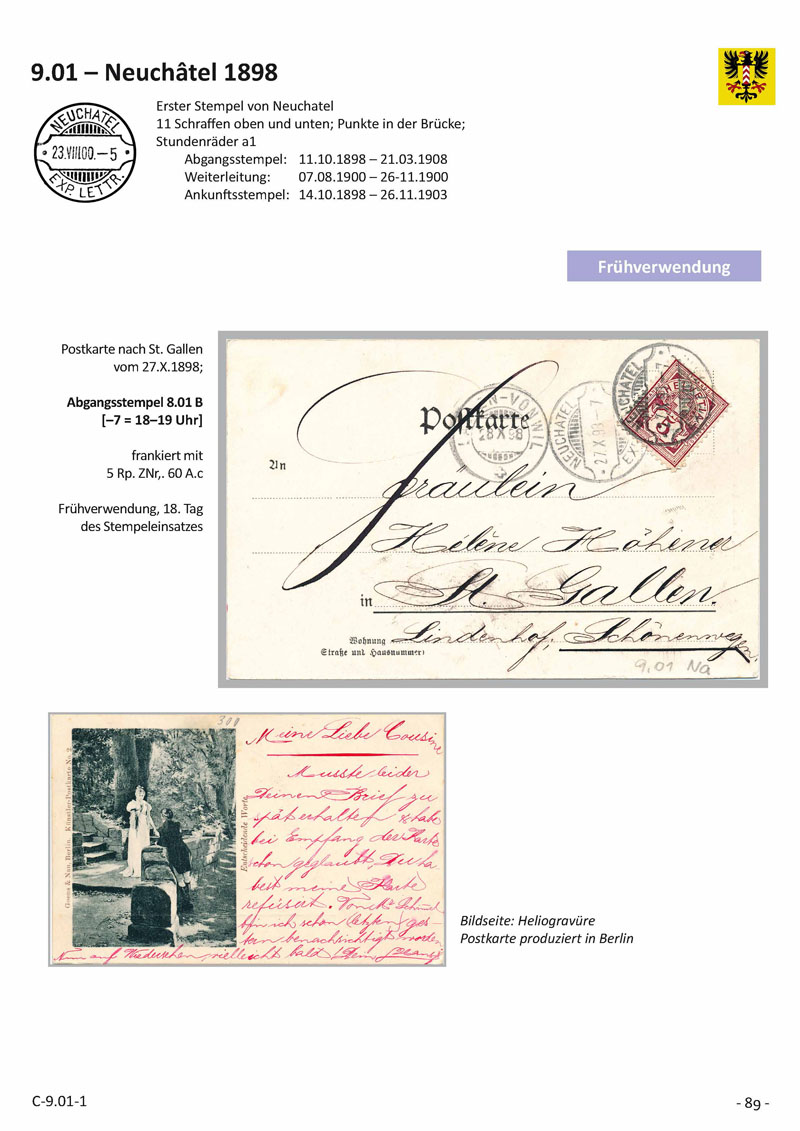 9.01 – Neuchâtel 1898
NEUCHATEL
23.VIII00.–5
EXP. LETTR.
Erster Stempel von Neuchatel
11 Schraffen oben und unten; Punkte in der Brücke;
Stundenräder a1
Abgangsstempel: 11.10.1898 – 21.03.1908
Weiterleitung: 07.08.1900 – 26-11.1900
Ankunftsstempel: 14.10.1898 – 26.11.1903
Frühverwendung
Postkarte nach St. Gallen
vom 27.X.1898;
Abgangsstempel 8.01 B
[–7 = 18–19 Uhr]
frankiert mit
5 Rp. ZNr,. 60 A.c
Frühverwendung, 18. Tag
des Stempeleinsatzes
Postkarte
N-VONWIL
28 X 98
NEUCHATEL
27.X.98–7
NEUCHATEL
EX
HELVETIA
5
An
Fräulein
Helène Höhener
in St. Gallen.
Wohnung Lindenhof, Schönenwegen.
Straße und Hausnummer)
9.01 Na
300
Künstler-Postkarte No. 2
Berlin.
Entscheidende Worte.
Meine Liebe Cousine
Musste leider
Deinen Brief zu
spät erhalten & habe
bei Empfang der Karte
schon geglaubt Du ha
best meine Karte
refüsirt. Von
bin ich schon letzten ges
tern benachrichtigt worden
Nun auf Wiedersehen, vielleicht bald Dein
Bildseite: Heliogravüre
Postkarte produziert in Berlin
C-9.01-1
- 89 -